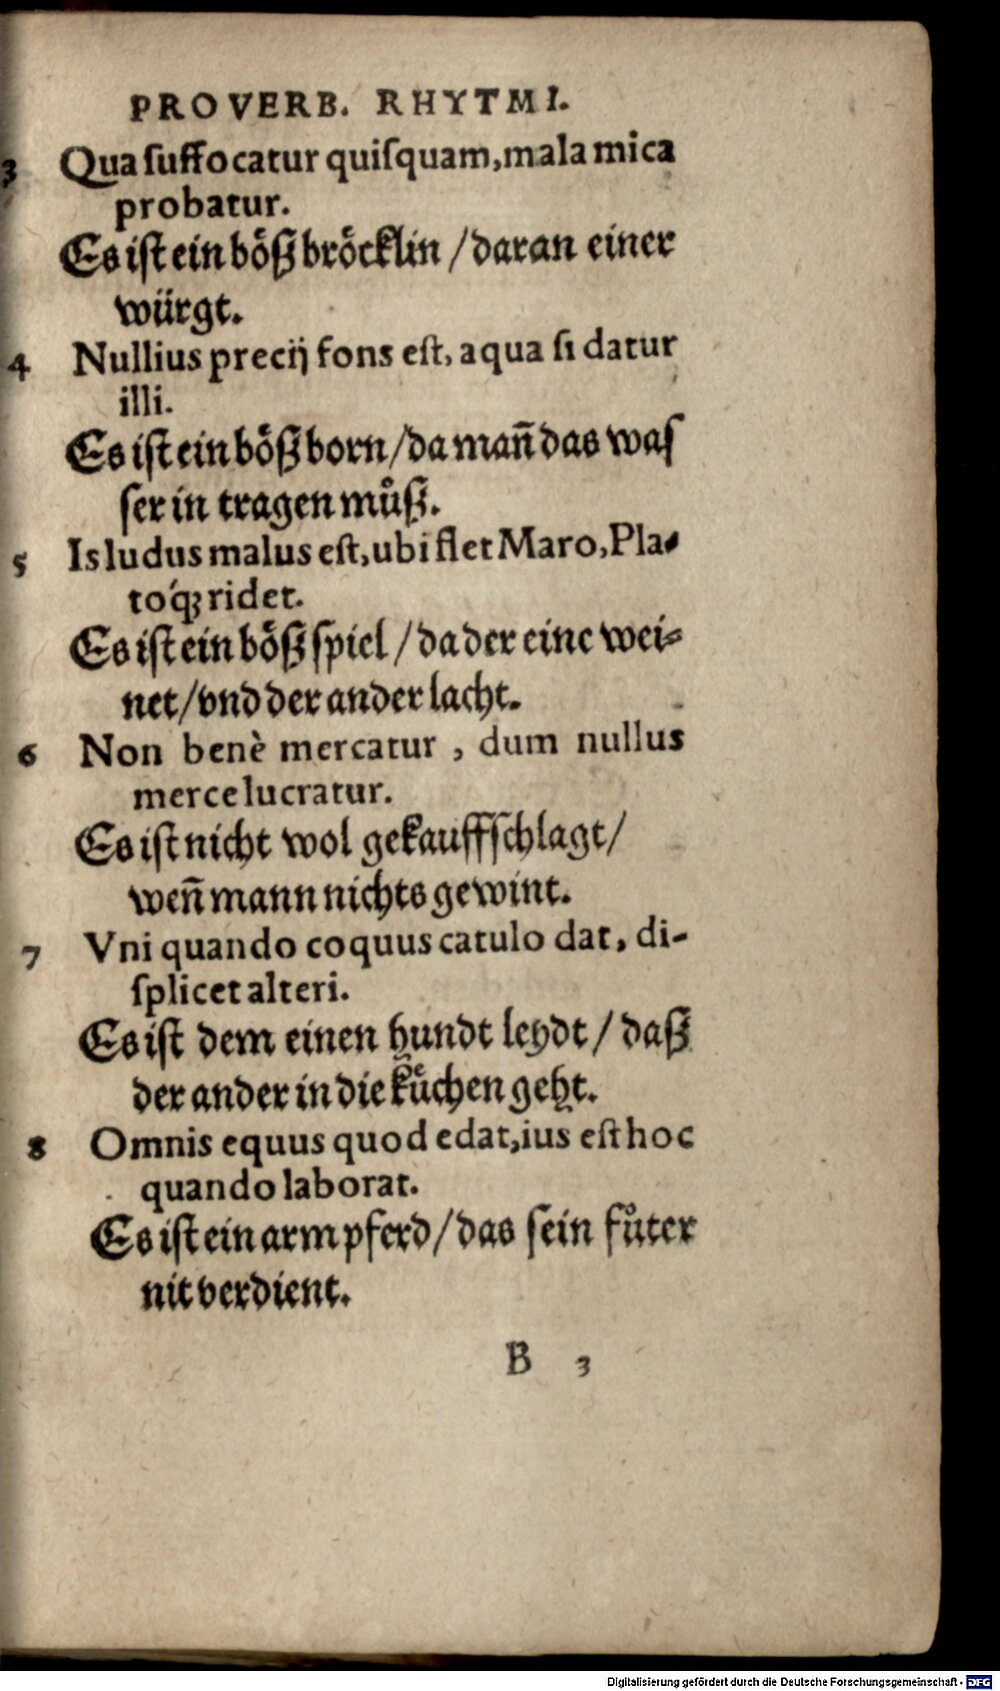 PROVERB. RHYTMI.
3 Qua ſuffocatur quiſquam, mala mica
probatur.
Es iſt ein bo&#868;ß bro&#868;cklin / daran einer
würgt.
4 Nullius precij fons eſt, aqua ſi datur
illi.
Es iſt ein bo&#868;ß born / da mañ das waſ
ſer in tragen můß.
5 Is ludus malus eſt, ubi flet Maro, Pla-
to'q; ridet.
Es iſt ein bo&#868;ß ſpiel / da der eine wei⸗
net / vnd der ander lacht.
6 Non benè mercatur, dum nullus
merce lucratur.
Es iſt nicht wol gekauffſchlagt /
weñ mann nichts gewint.
7 Vni quando coquus catulo dat, di-
ſplicet alteri.
Es iſt dem einen hundt leydt / daß
der ander in die ku&#868;chen geht.
8 Omnis equus quod edat, ius eſt hoc
quando laborat.
Es iſt ein arm pferd / das ſein fůter
nit verdient.
B 3
Digitalisierung gefördert durch die Deutsche Forschungsgemeinschaft - DFG